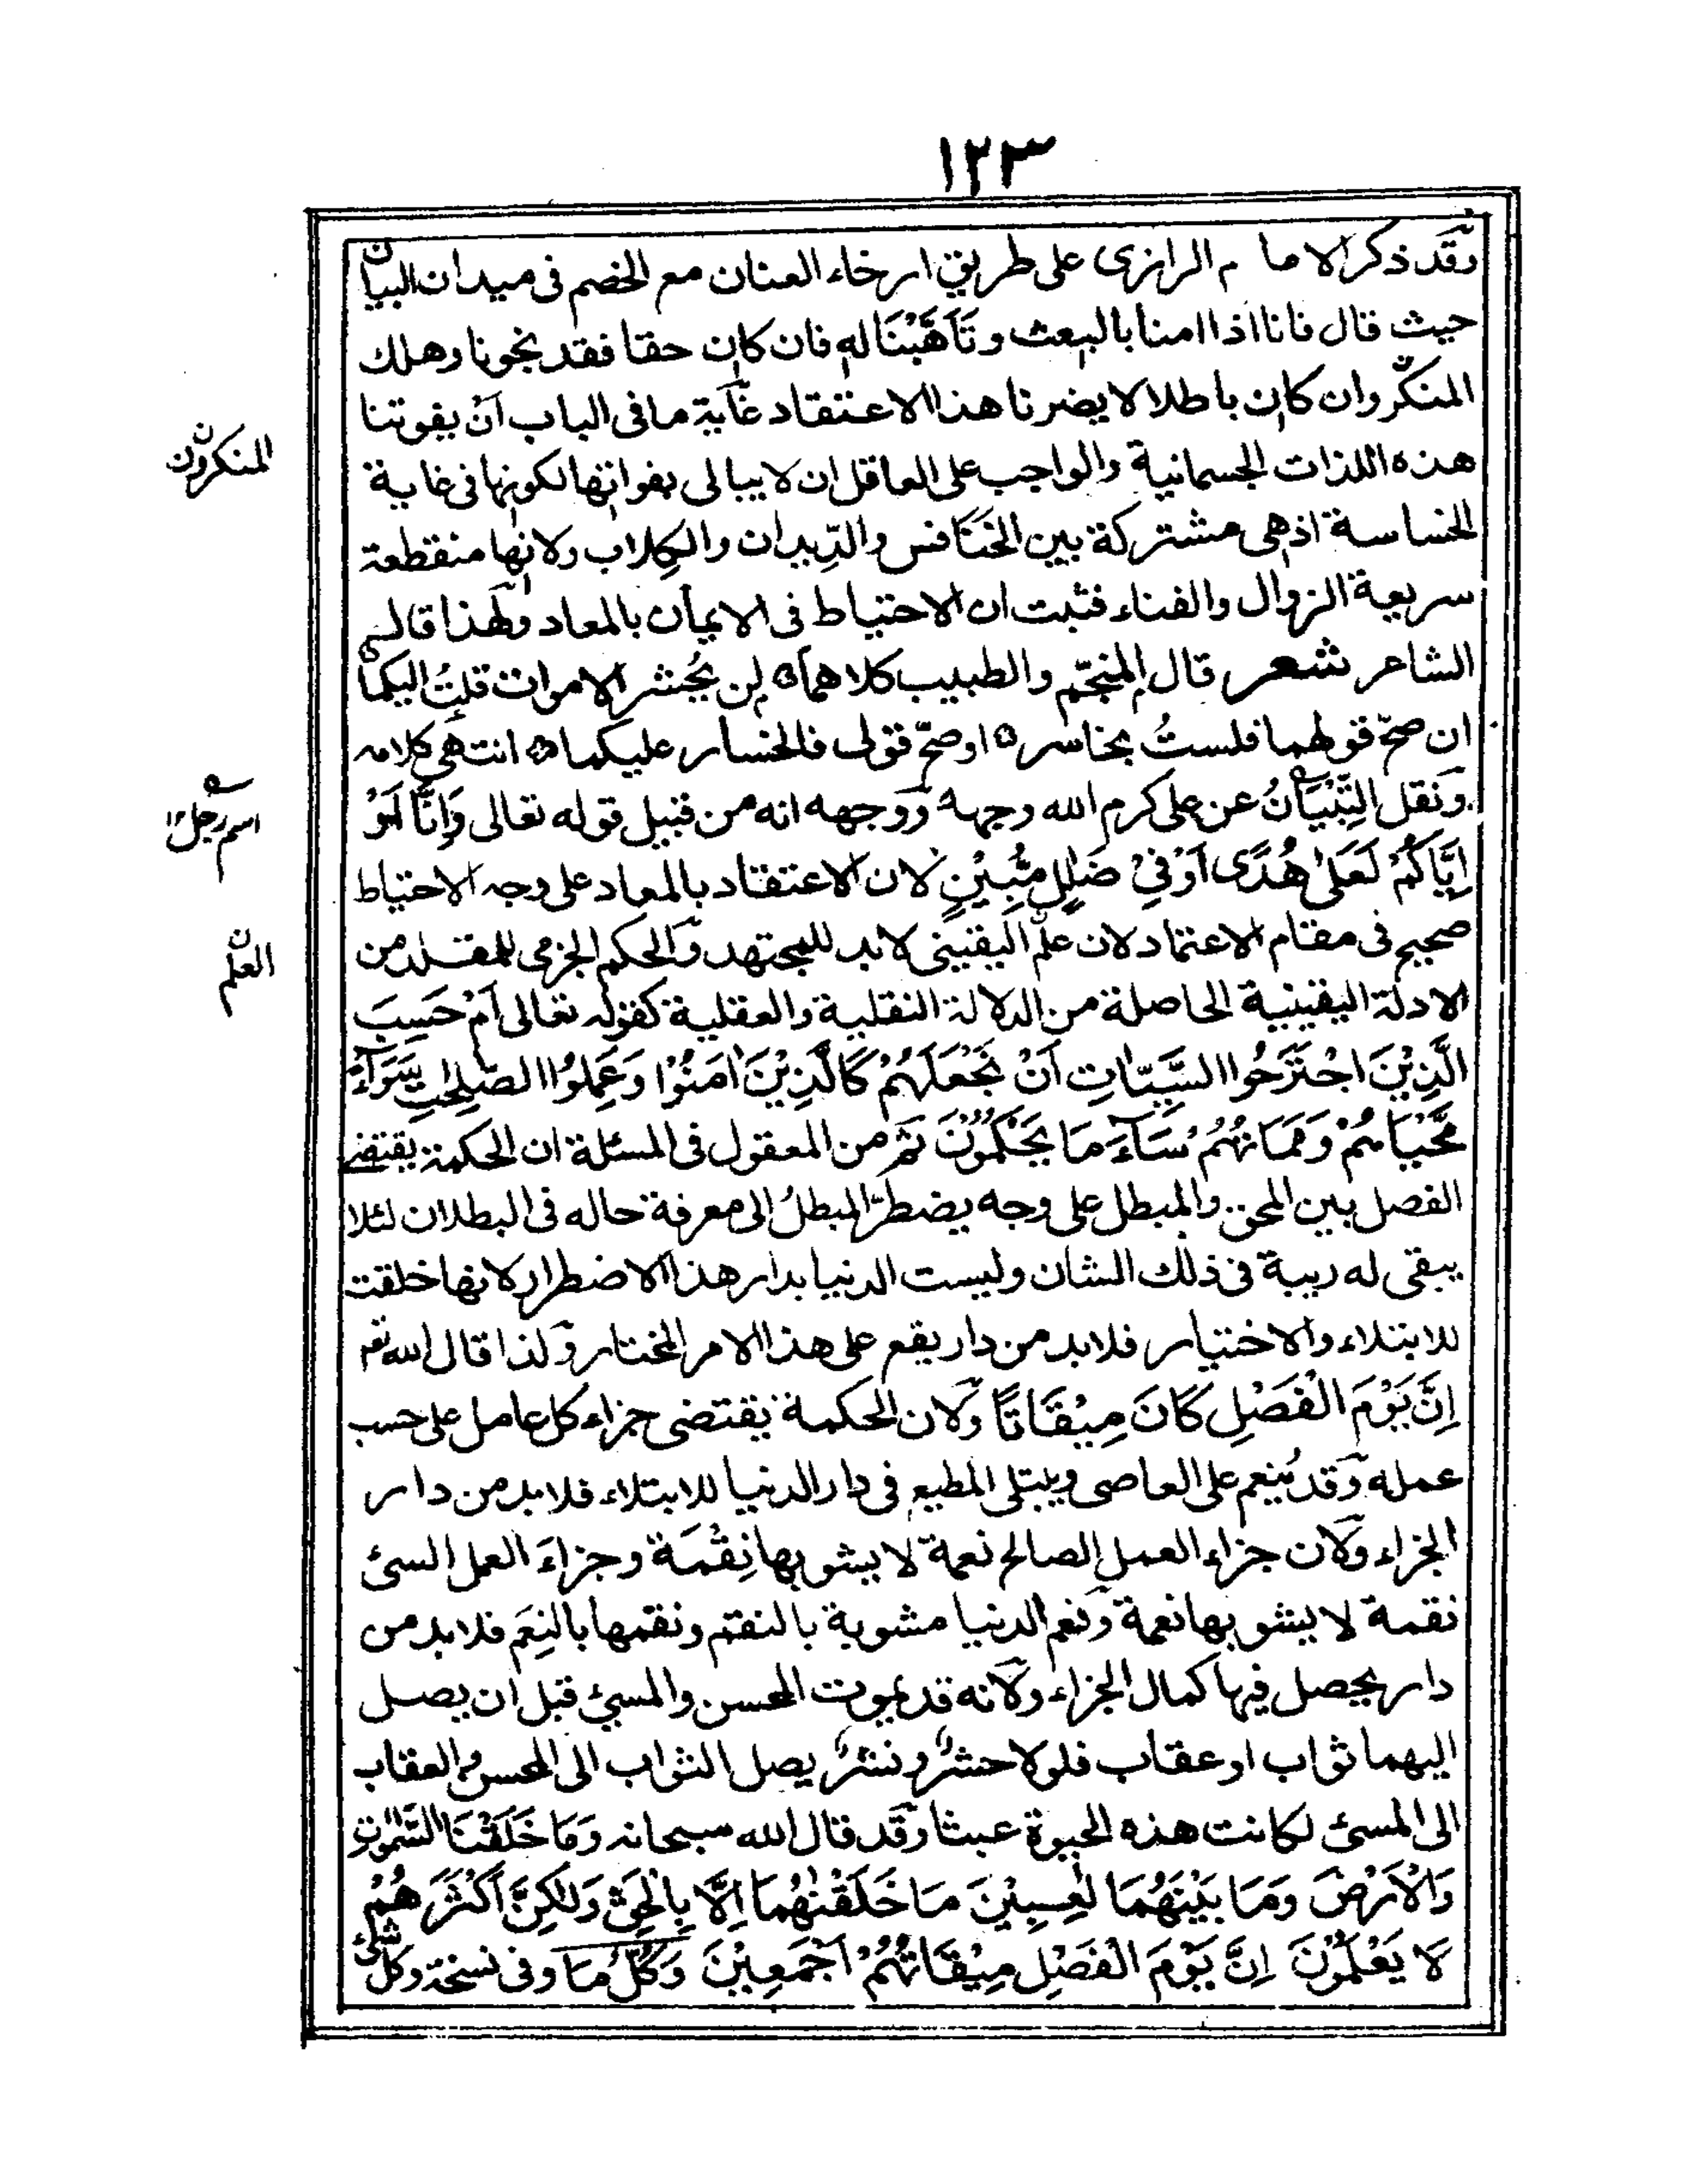 ١٢٣
وقد ذكر الامام الرازى على طريق ارخاء العنان مع الخصم فى ميدان البيان
حيث قال فانا اذا امنا بالبعث وتَأَهَّبْنَا له فان كان حقا فقد نجونا وهلك
المنكر وان كان باطلا لا يضرنا هذا الاعتقاد غاية ما فى الباب اَنْ يفوتنا
هذه اللذات الجسمانية والواجب على العاقل ان لا يبالى بفواتها لكونها فى غاية
الخساسة اذ هى مشتركة بين الخَنَافس والدِّيدان والكِلاب ولانها منقطعة
سريعة الزوال والفناء فثبت ان الاحتياط فى الايمان بالمعاد ولهذا قال
الشاعر شعر قال المنجّم والطبيب كلاهما ۞ لن يُحشر الاموات قلتُ اليكما
ان صحّ قولهما فلستُ بخاسر ۞ او صحّ قولى فالخسار عليكما ۞ انتهى كلامه
ونقل التِّبْيَانُ عن على كرم الله وجهه ووجهه انه من قبيل قوله تعالى وَاِنَّا اَوْ
اِيَّاكُمْ لَعَلٰى هُدًى اَوْ فِيْ ضَلٰلٍ مُّبِيْنٍ لان الاعتقاد بالمعاد على وجه الاحتياط
صحيح فى مقام الاعتماد لان علم اليقينى لابد للمجتهد والحكم الجزمى للمقلد من
الادلة اليقينية الحاصلة من الدلالة النقلية والعقلية كقوله تعالى اَمْ حَسِبَ
الَّذِيْنَ اجْتَرَحُوا السَّيِّاٰتِ اَنْ نَّجْعَلَهُمْ كَالَّذِيْنَ اٰمَنُوْا وَعَمِلُوا الصّٰلِحٰتِ سَوَآءً
مَّحْيَاهُمْ وَمَمَاتُهُمْ سَآءَ مَا يَحْكُمُوْنَ ثم من المعقول فى المسئلة ان الحكمة يقتضى
الفصل بين المحق والمبطل على وجه يضطرّ المبطلُ الى معرفة حاله فى البطلان لئلا
يبقى له ريبة فى ذلك الشان وليست الدنيا بدار هذا الاضطرار لانها خلقت
للابتلاء والاختيار فلابد من دار يقع على هذا الامر المختار ولذا قال الله تع
اِنَّ يَوْمَ الْفَصْلِ كَانَ مِيْقَاتًا ولان الحكمة يقتضى جزاء كل عامل على حسب
عمله وقد يُنعم على العاصى ويبتلى المطيع فى دار الدنيا للابتلاء فلابد من دار
الجزاء ولان جزاء العمل الصالح نعمة لا يشوبها نِقْمَة وجزاءَ العمل السئ
نقمة لا يشوبها نعمة ونعم الدنيا مشوبة بالنقم ونقمها بالنِعَم فلابد من
دار يحصل فيها كمال الجزاء ولانه قد يموت المحسن والمسئ قبل ان يصل
اليهما ثواب او عقاب فلولا حشرٌ ونشرٌ يصل الثواب الى المحسن والعقاب
الى المسئ لكانت هذه الحيوة عبثا وقد قال الله سبحانه وَمَا خَلَقْنَا السَّمٰوٰتِ
وَالْاَرْضَ وَمَا بَيْنَهُمَا لٰعِبِيْنَ مَا خَلَقْنٰهُمَا اِلَّا بِالْحَقِّ وَلٰكِنَّ اَكْثَرَهُمْ
لَا يَعْلَمُوْنَ اِنَّ يَوْمَ الْفَصْلِ مِيْقَاتُهُمْ اَجْمَعِيْنَ وَكُلُّ مَا وفى نسخة وكل شئ
المنكرون
اسم رجل ١٢
العلم